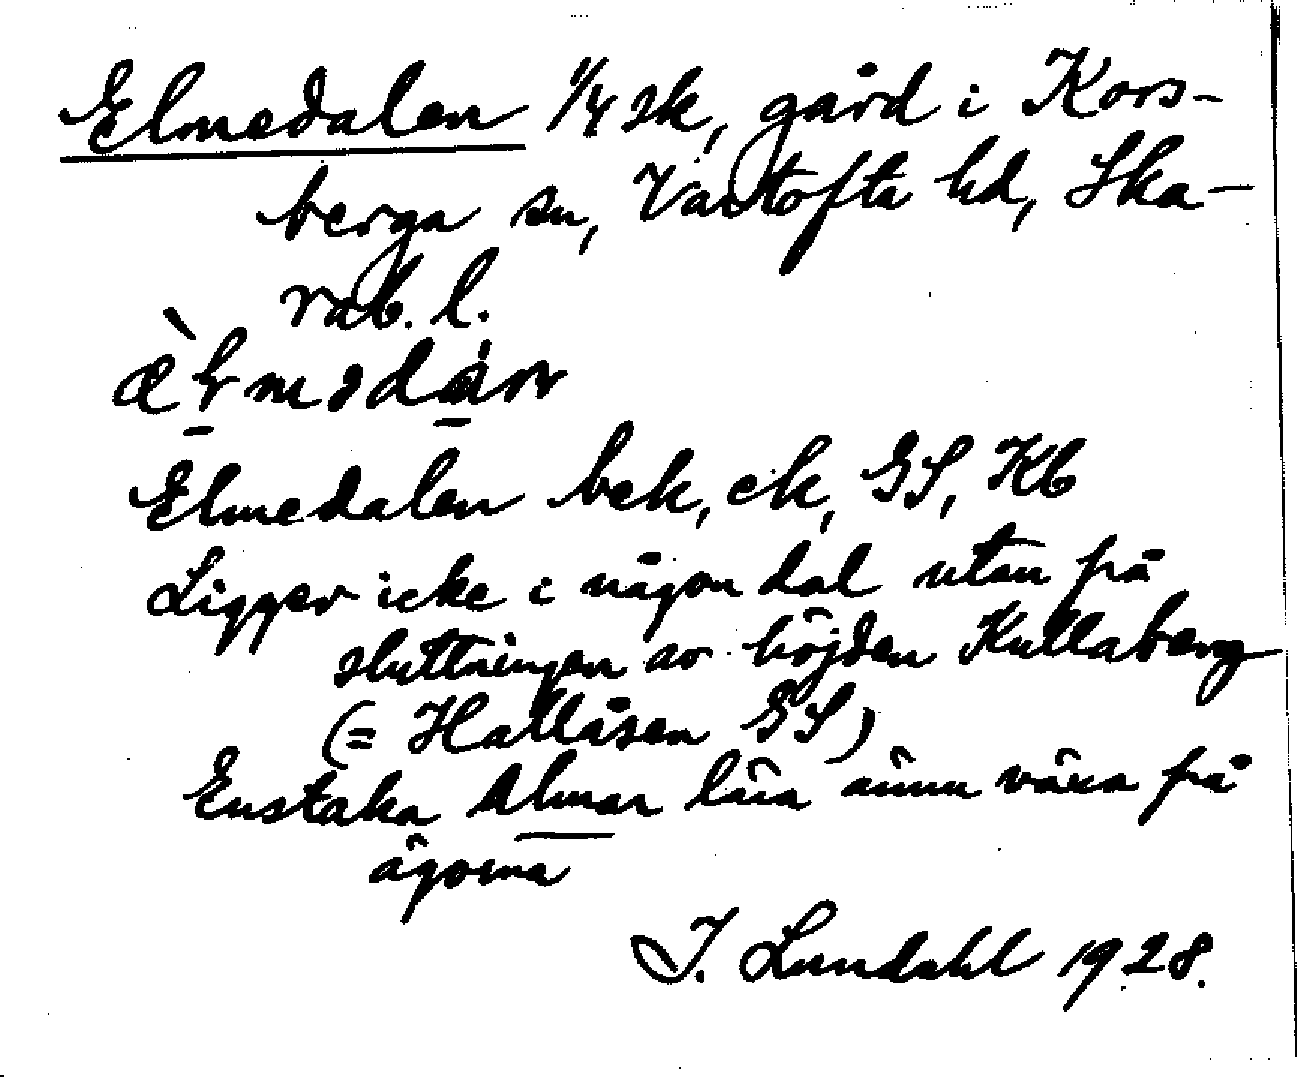 Elmedalen 1/4 sk, gård i Kors-
berga sn, Vartofta hd, Ska-
rab. l.
Elmedalen bek, ek, GS, Kb
Ligger icke i någon dal utan på
sluttningen av höjden Kullaberg
(= Hallåsen GS)
Enstaka almar lära ännu växa på
ägorna
I. Lundahl 1928.